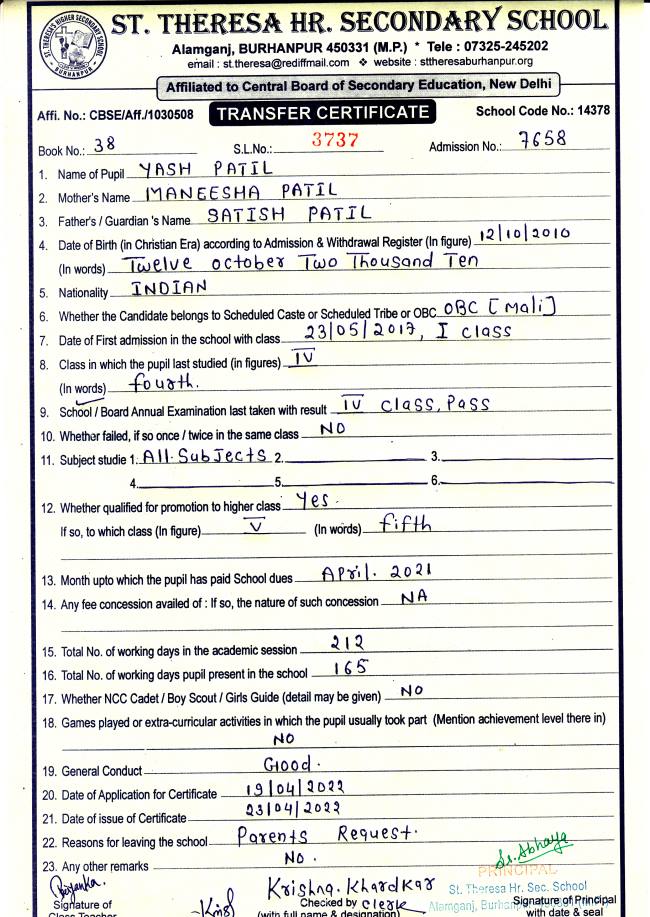 ST. THERESA HR. SECONDARY SCHOOL
Alamganj, BURHANPUR 450331 (M.P.) * Tele : 07325-245202
email : st.theresa@rediffmail.com ❖ website : sttheresaburhanpur.org
Affiliated to Central Board of Secondary Education, New Delhi
Affi. No.: CBSE/Aff./1030508 TRANSFER CERTIFICATE School Code No.: 14378
Book No.: 38 S.L.No.: 3737 Admission No.: 7658
1. Name of Pupil YASH PATIL
2. Mother's Name MANEESHA PATIL
3. Father's / Guardian 's Name SATISH PATIL
4. Date of Birth (in Christian Era) according to Admission & Withdrawal Register (In figure) 12/10/2010
(In words) Twelve october Two Thousand Ten
5. Nationality INDIAN
6. Whether the Candidate belongs to Scheduled Caste or Scheduled Tribe or OBC OBC [Mali]
7. Date of First admission in the school with class 23/05/2017, I class
8. Class in which the pupil last studied (in figures) IV
(In words) fourth.
9. School / Board Annual Examination last taken with result IV class, Pass
10. Whether failed, if so once / twice in the same class NO
11. Subject studie 1. All Subjects 2. 3.
4. 5. 6.
12. Whether qualified for promotion to higher class Yes.
If so, to which class (In figure) V (In words) fifth
13. Month upto which the pupil has paid School dues April. 2021
14. Any fee concession availed of : If so, the nature of such concession NA
15. Total No. of working days in the academic session 212
16. Total No. of working days pupil present in the school 165
17. Whether NCC Cadet / Boy Scout / Girls Guide (detail may be given) NO
18. Games played or extra-curricular activities in which the pupil usually took part (Mention achievement level there in)
NO
19. General Conduct Good.
20. Date of Application for Certificate 19/04/2022
21. Date of issue of Certificate 23/04/2022
22. Reasons for leaving the school Parents Request.
23. Any other remarks NO.
Sr. Abhaya
PRINCIPAL
Priyanka. Krishna. Khardkar St. Theresa Hr. Sec. School
Signature of Checked by clerk Alamganj, Signature of Principal
Class Teacher (with full name & designation) with date & seal